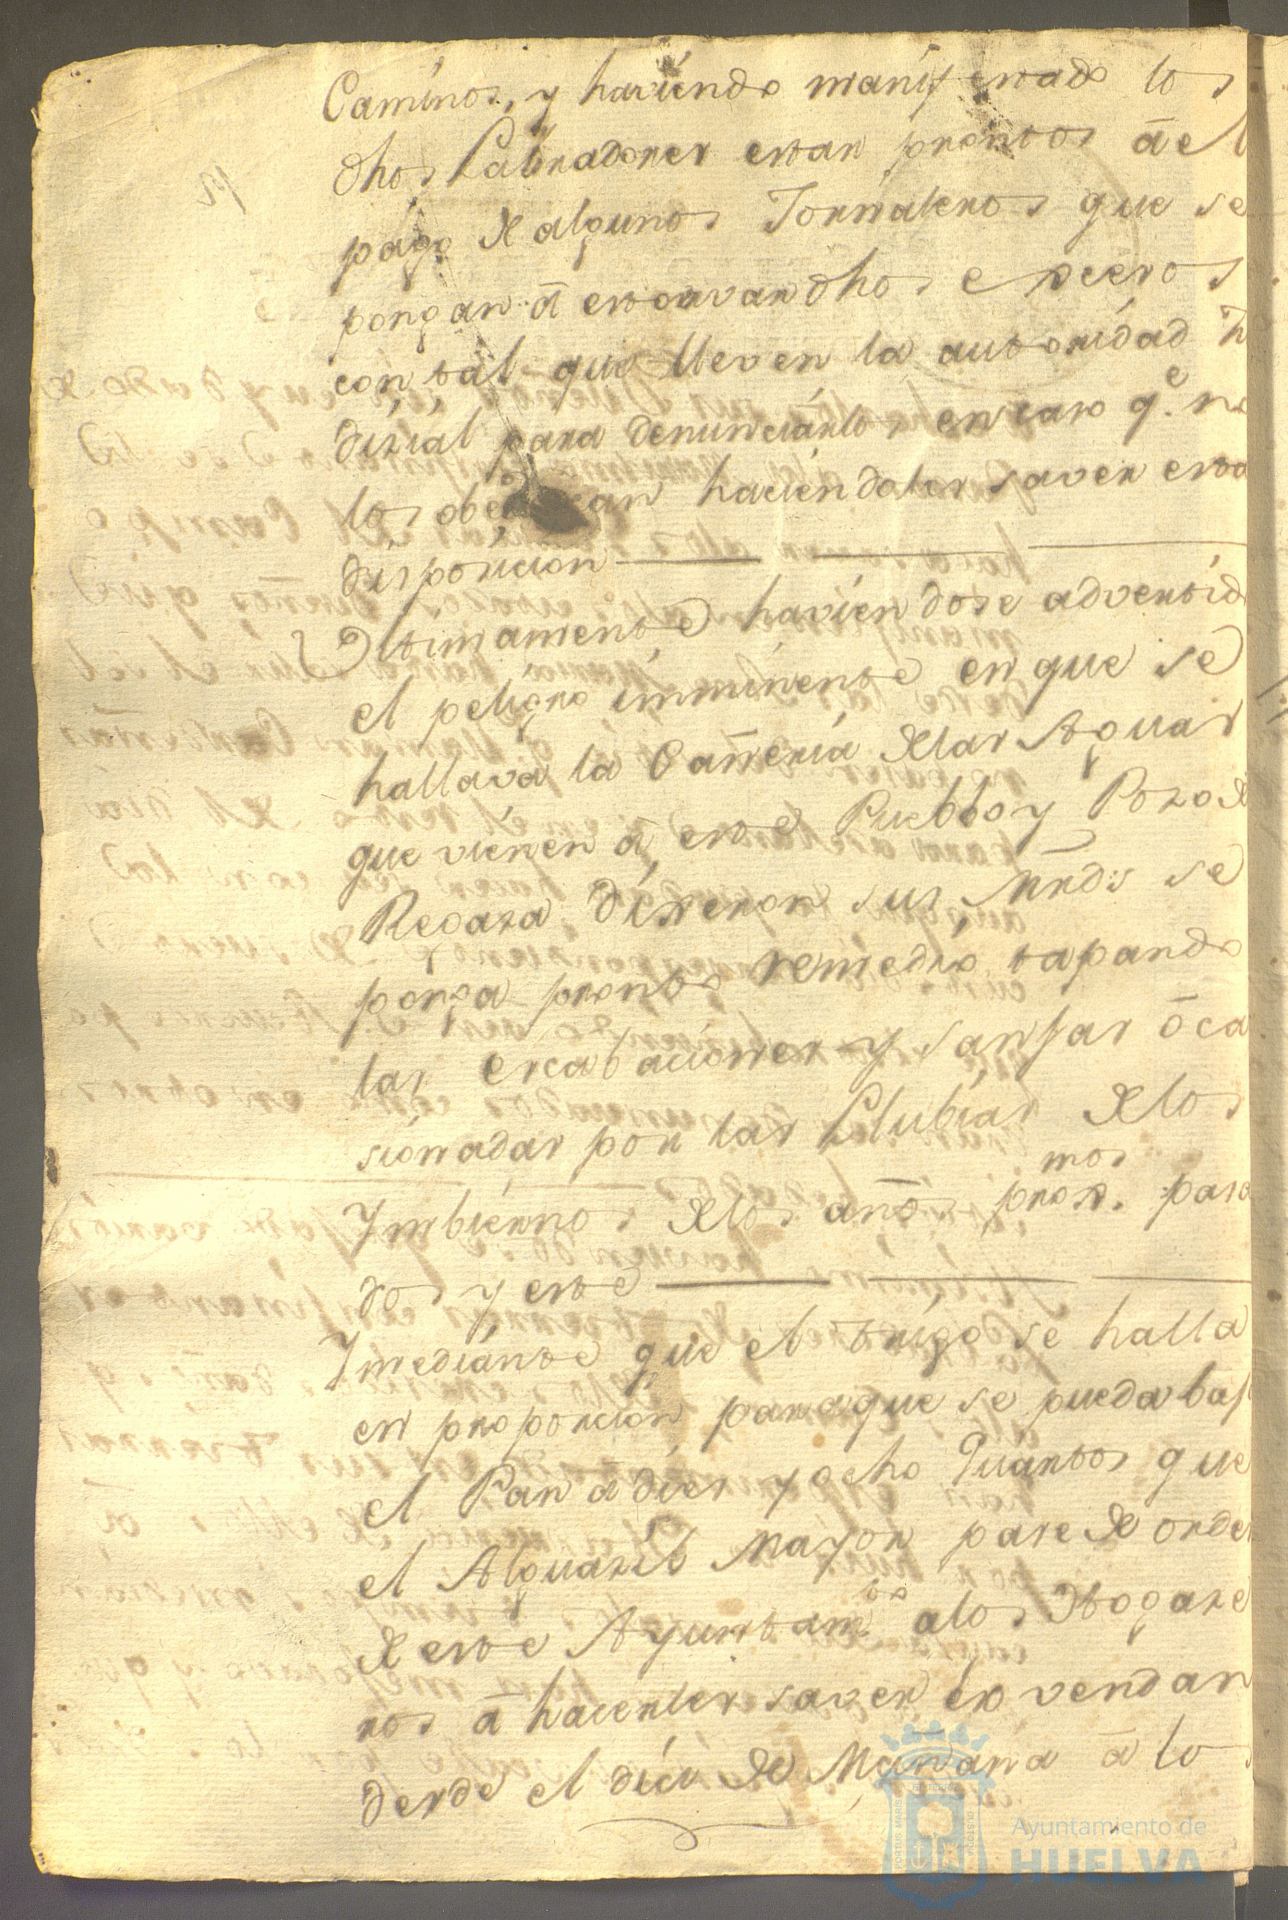 Caminos, y haviendo manifestado los
dhos Labradores estar prontos á el
pago de algunos Jornaleros que se
pongan á estorvar dhos excecos
con tal que lleven la autoridad Ju
dizial para denunciarlos en caso q.e no
los obedezcan haciendoles saver esta
disposicion
Ultimamente haviendose advertid
el peligro imminente en que se
hallava la Cañeria de las Aguas
que vienen á este Pueblo y Pozo de
Regaza dixeron sus mrds se
ponga pronto remedio tapando
las Escabaciones y sanjas oca
sionadas por las Llubias de los
Ymbiernos de los años prox.mos pasa
dos y este
Ymediante que el trigo se halla
en proporcion para que se pueda baj
el Pan á diez y ocho Quartos que
el Alguazil Mayor pase de orden
de este Ayuntam.to a los Ottogare
nos á hacerles saver lo vendan
desde el dia de Mañana á lo
Ayuntamiento de
HUELVA